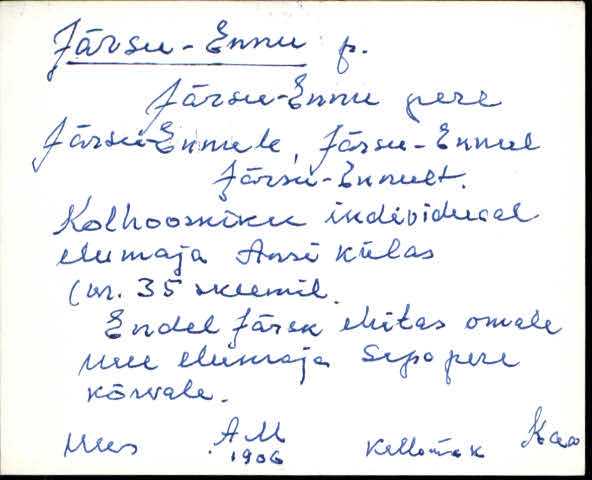 Järsu-Ennu p.
Järsu-Ennu pere
Järsu-Ennule, Järsu-Ennul
Järsu-Ennult.
Kolhoosniku individual
elumaja Ansi külas
(nr. 35 skeemil.
Endel Järsk ehitas omale
uue elumaja Sepa pere
kõrvale.
Mus A.M Kaa
1906